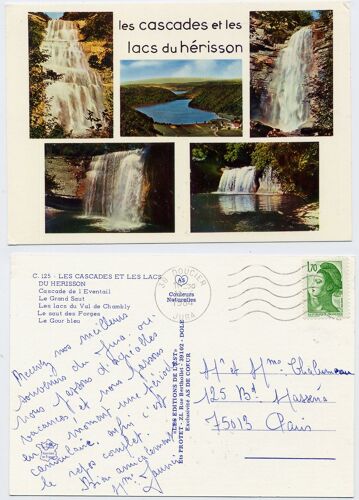 les cascades et les
lacs du hérisson
C. 125 - LES CASCADES ET LES LACS
DU HERISSON
Cascade de l'Eventail
Le Grand Saut
Les lacs du Val de Chambly
Le saut des Forges
Le Gour bleu
AS
Couleurs
Naturelles
39 DOUCIER
JURA
1,70
Recevez nos meilleurs
souvenirs du Jura, où
nous passons d'agréables
vacances, et nous faisons
en ce moment une période
caniculaire. enfin, c'est
le repos complet.
Bien amicalement
LES EDITIONS DE L'EST
Exclusivité AS DE COEUR
Mr et Mme
125 Bd Masséna
75013 Paris